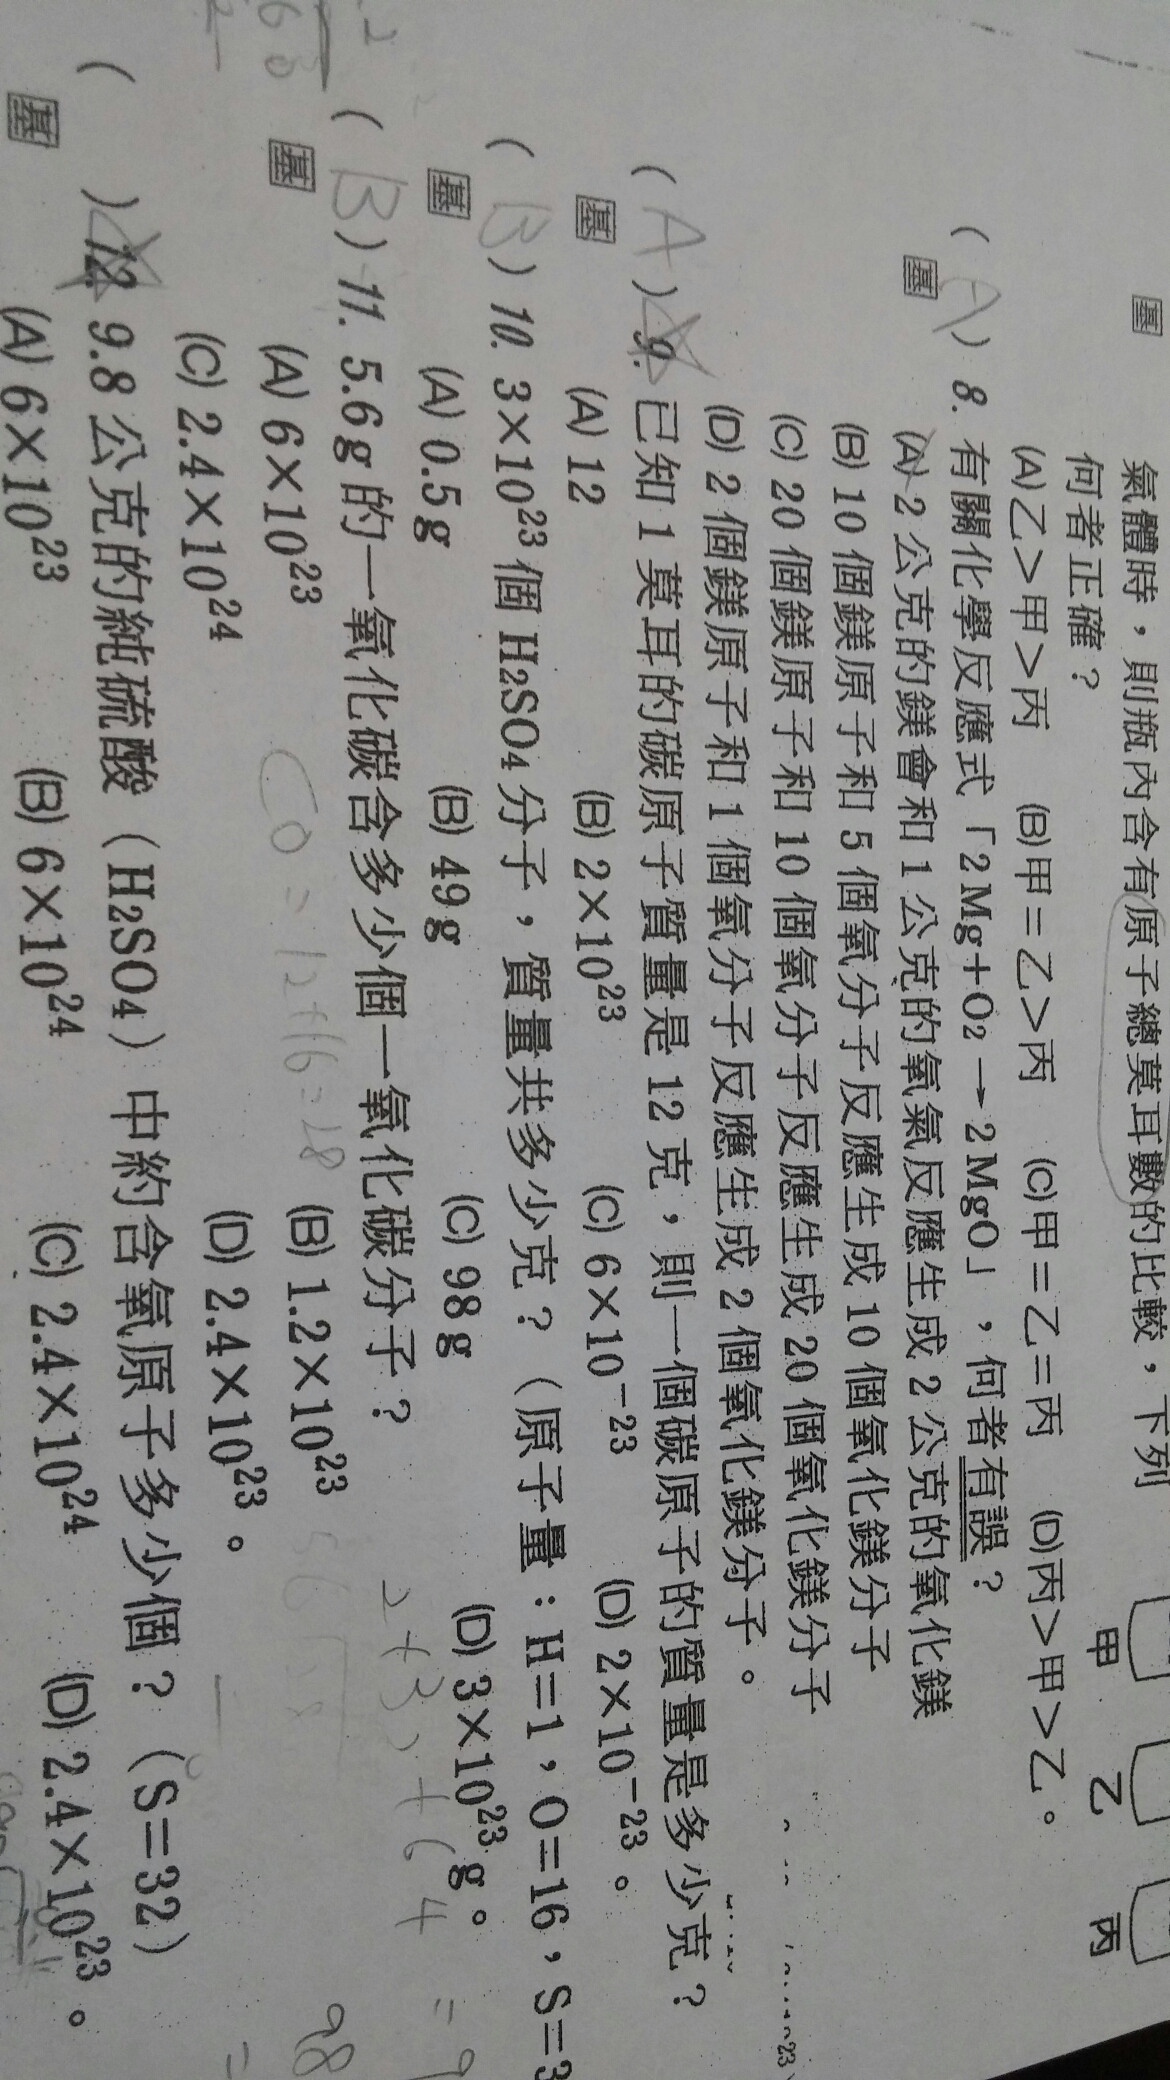 氣體時，則瓶內含有原子總莫耳數的比較，下列
何者正確？
(A)乙＞甲＞丙 (B)甲＝乙＞丙 (C)甲＝乙＝丙 (D)丙＞甲＞乙。
甲 乙 丙
基
(A) 8. 有關化學反應式「2Mg＋O2→2MgO」，何者有誤？
基
(A) 2公克的鎂會和1公克的氧氣反應生成2公克的氧化鎂
(B) 10個鎂原子和5個氧分子反應生成10個氧化鎂分子
(C) 20個鎂原子和10個氧分子反應生成20個氧化鎂分子
(D) 2個鎂原子和1個氧分子反應生成2個氧化鎂分子。
(A) 9. 已知1莫耳的碳原子質量是12克，則一個碳原子的質量是多少克？
基
(A) 12 (B) 2×10²³ (C) 6×10⁻²³ (D) 2×10⁻²³。
(B) 10. 3×10²³個H2SO4分子，質量共多少克？（原子量：H＝1，O＝16，S＝3
基
(A) 0.5g (B) 49g (C) 98g (D) 3×10²³g。
(B) 11. 5.6g的一氧化碳含多少個一氧化碳分子？
基
(A) 6×10²³ (B) 1.2×10²³
(C) 2.4×10²⁴ (D) 2.4×10²³。
CO=12+16=28
98
( ) 12. 9.8公克的純硫酸（H2SO4）中約含氧原子多少個？（S＝32）
基
(A) 6×10²³ (B) 6×10²⁴ (C) 2.4×10²⁴ (D) 2.4×10²³。